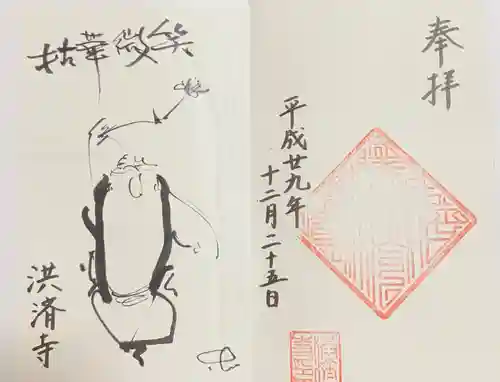 奉拝
平成廿九年
十二月二十五日
拈華微笑
洪濟寺